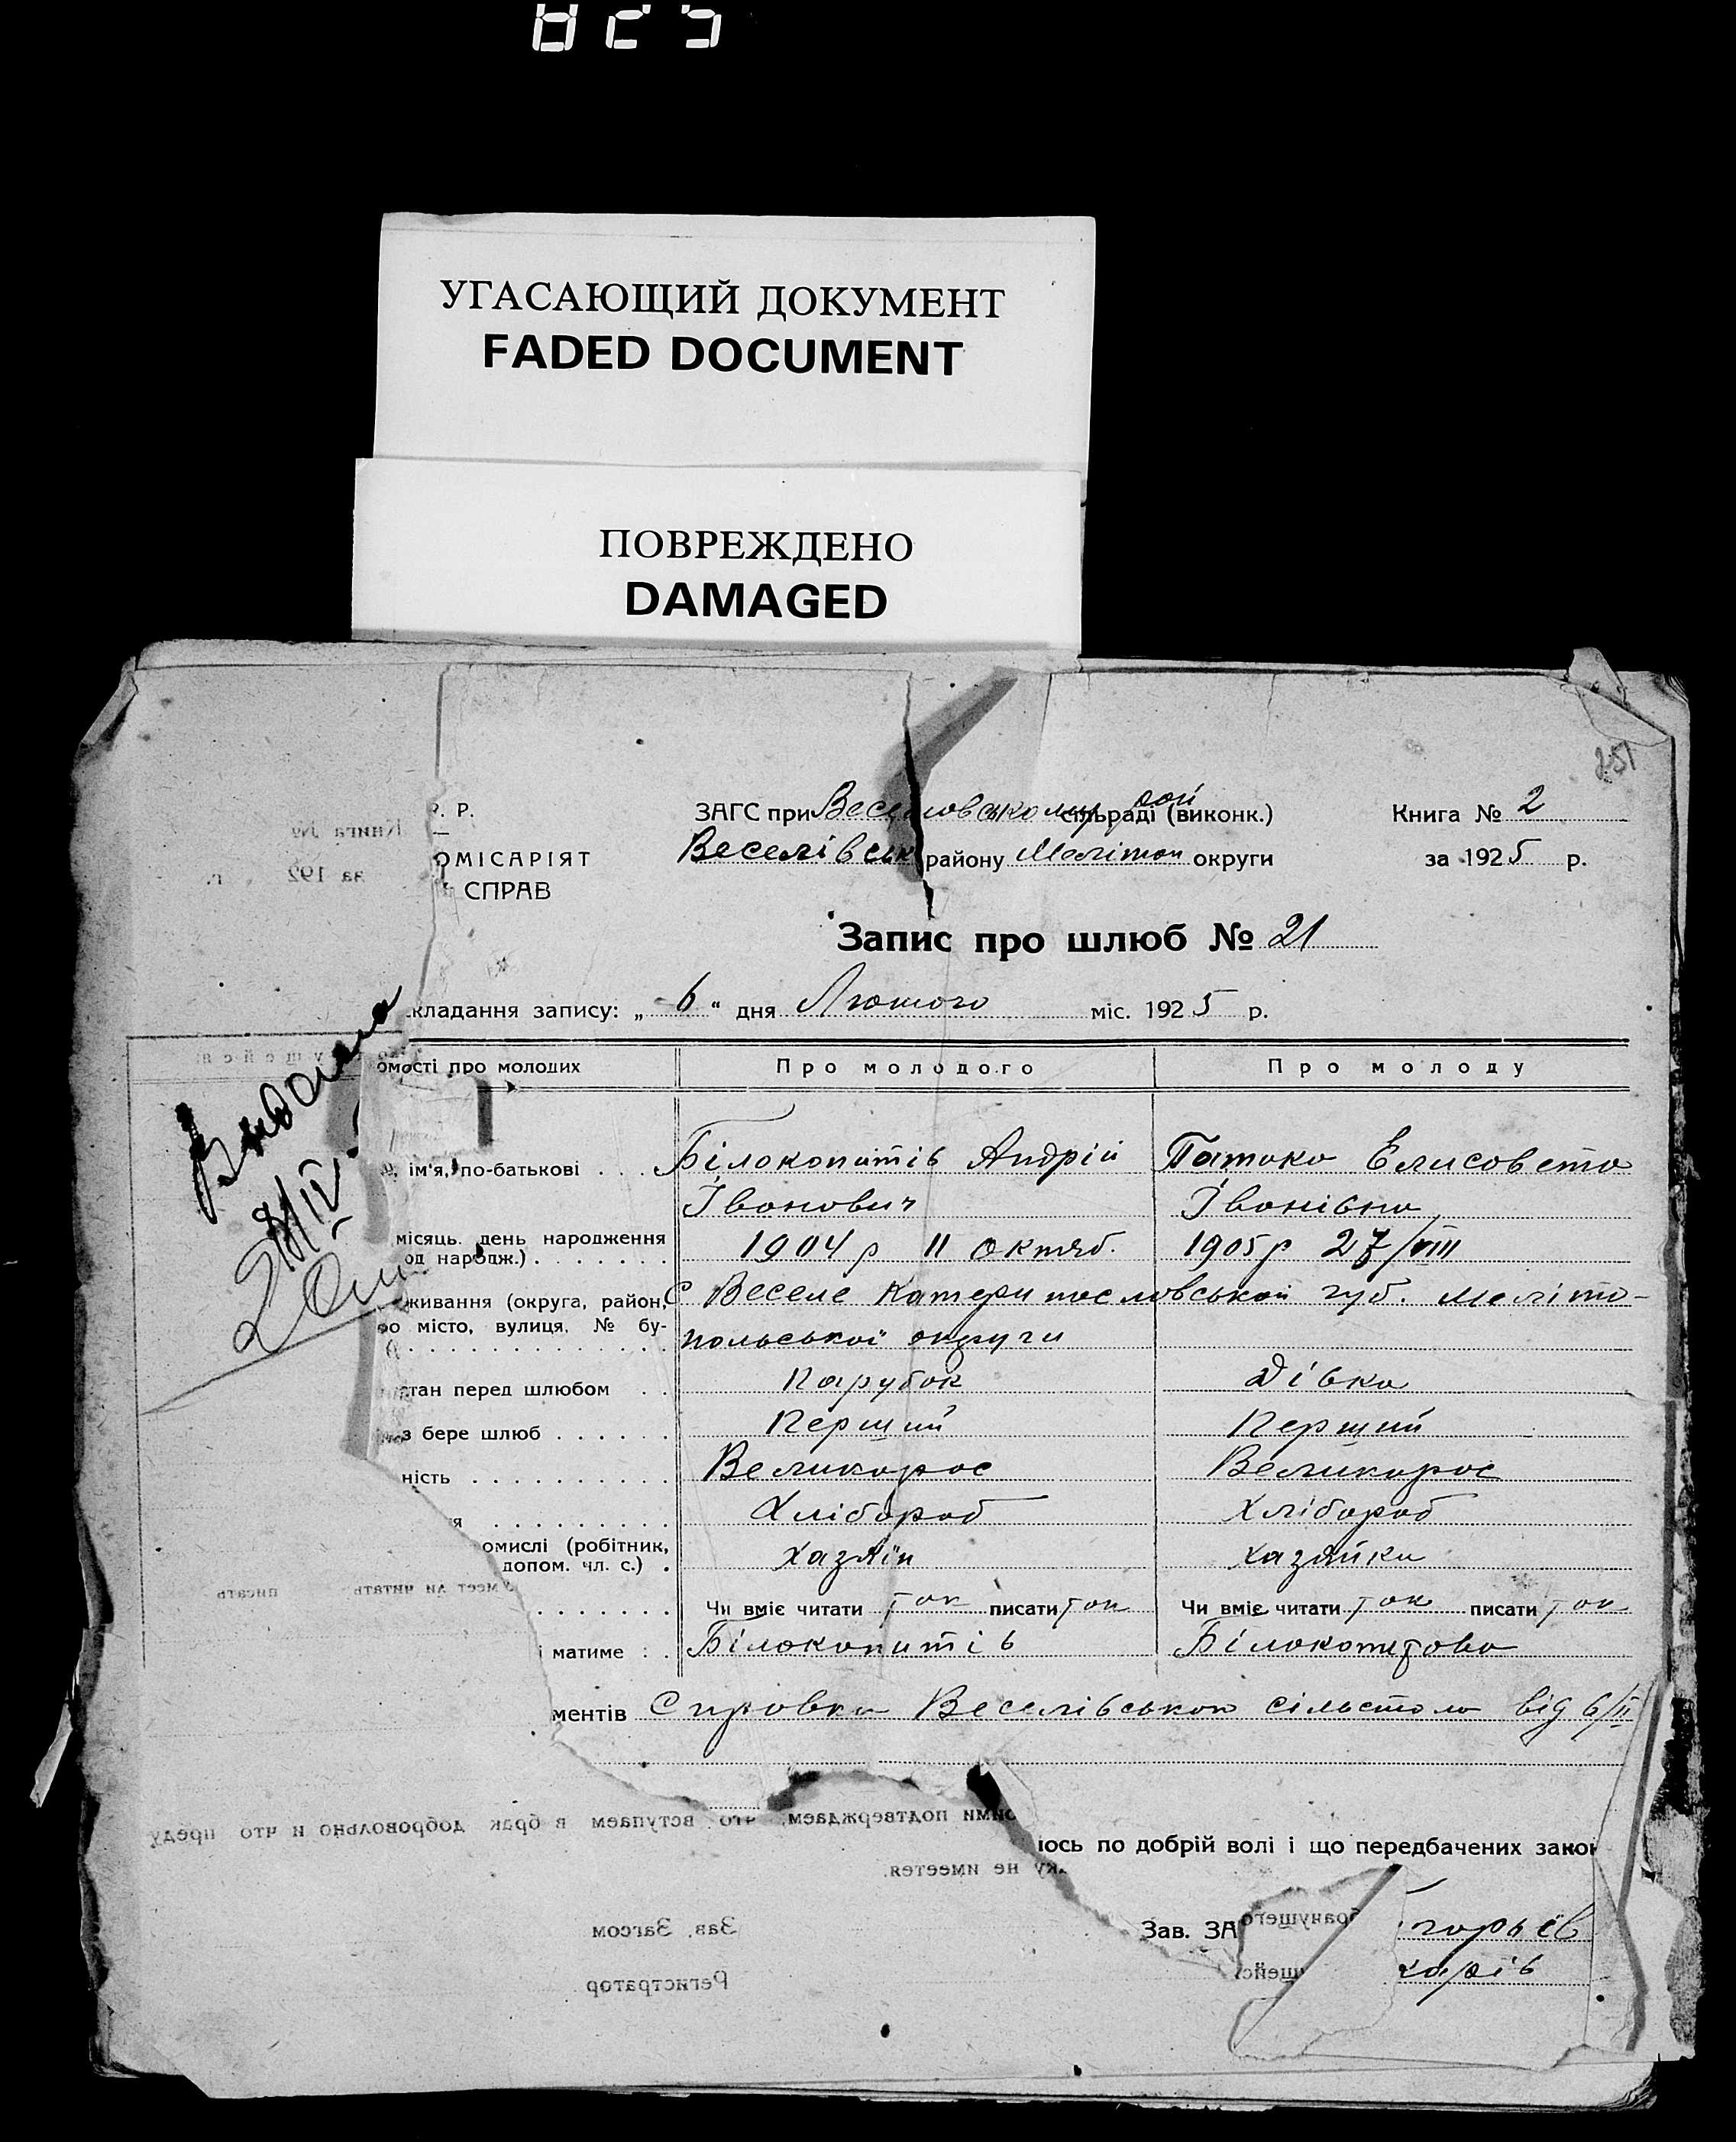 825
УГАСАЮЩИЙ ДОКУМЕНТ
FADED DOCUMENT
ПОВРЕЖДЕНО
DAMAGED
251
Р. Р.
ОМІСАРІЯТ
СПРАВ
ЗАГС при Веселовському рай сільраді (виконк.)
Веселівськ району Мелітоп округи
Книга № 2
за 1925 р.
Запис про шлюб № 21
кладання запису: „ 6 “ дня Лютого міс. 1925 р.
омості про молодих
Про молодого
Про молоду
ім'я, по-батькові . . . Білокопитів Андрій
Іванович
Патока Елисовета
Іванівна
місяць, день народження
од народж.) . . . . . . . 1904 р 11 Октяб.
1905 р 27/VIII
живання (округа, район, С Веселе Катеринословської губ. Меліто-
о місто, вулиця, № бу- польської округи
стан перед шлюбом . . Парубок
Дівка
з бере шлюб . . . . . . Перший
Перший
ність . . . . . . . . . . Великорос
Великорос
я . . . . . . . . . Хлібороб
Хлібороб
омислі (робітник,
допом. чл. с.) . Хазяїн
Хазяйка
Чи вміє читати так писати так
Чи вміє читати так писати так
і матиме : . Білокопитів
Білокопитова
ментів Справка Веселівського сільстола від 6/II
юсь по добрій волі і що передбачених закон
Зав. ЗА горьев
карів
Видана
Книга №
за 192 г.
Умеет ли читать писать
ними подтверждаем, что вступаем в брак добровольно и что преду
ку не имеется.
Зав. Загсом
Регистратор